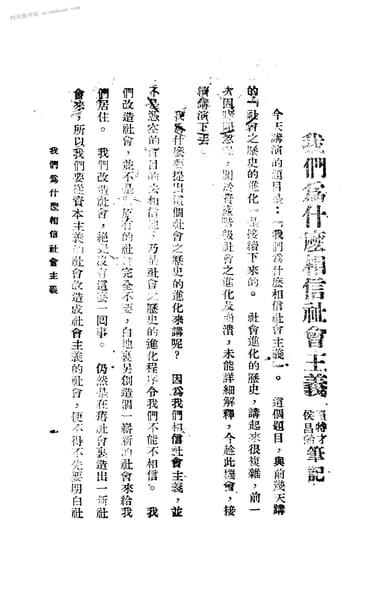 我們為什麼相信社會主義
侯昌 筆記
今天講演的題目是：『我們為什麼相信社會主義』。這個題目，與前幾天講
的『社會之歷史的進化』是接續下來的。社會進化的歷史，講起來很複雜，前一
次因時間 關於 級社會之進化及 潰，未能詳細解釋，今趁此機會，接
續講演下去。
我 為什麼要提出這個社會之歷史的進化來講呢？因為我們相信社會主義，並
不是憑空的盲目的去相信他，乃是社會 歷史的進化程序令我們不能不相信。我
們改造社會，並不是 原有的社 完全不要，白地裏另創造個一嶄新的社會來給我
們居住。我們改造社會，絕 沒有這套一囘事。仍然是在舊社會裏造出一新社
會來，所以我們要從資本主義的社會改造成社會主義的社會，便不得不先要明白社
我們為什麼相信社會主義